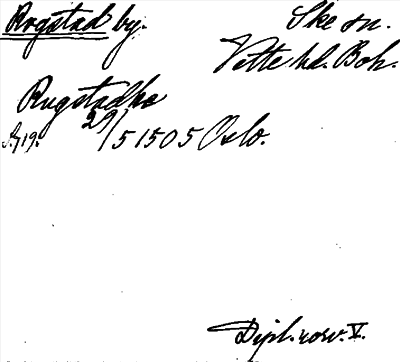 Rogstad by.
Ske sn.
Vette hd. Boh.
Rugstadha
S. 719. 29/5 1505 Oslo.
Dipl. norv. V.